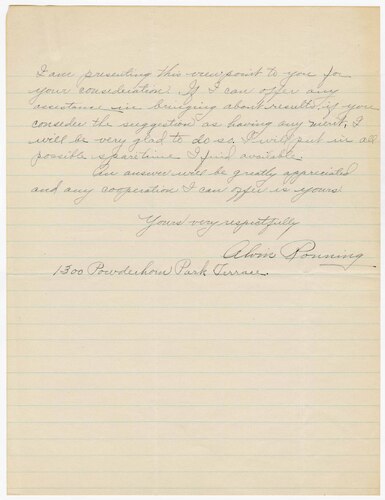 I am presenting this viewpoint to you for
your consideration. If I can offer any
assistance in bringing about results, if you
consider the suggestion as having any merit, I
will be very glad to do so. I will put in all
possible sparetime I find available.
An answer will be greatly appreciated
and any cooperation I can offer is yours.
Yours very respectfully
Alvin Ronning
1300 Powderhorn Park Terrace.